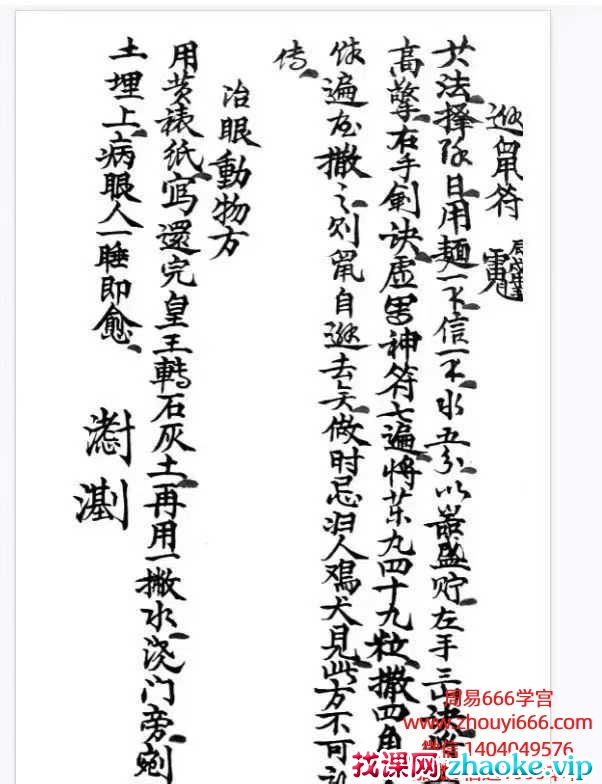 逊鼠符
其法择除日用麺一不信一不水五分以器盛贮左手三山诀
高擎右手剑诀虚男神符七遍将药丸四十九粒撒四角
候遍屋撒之则鼠自逊去矣做时忌妇人鸡犬见此方不可
传
治眼動物方
用黄裱纸寫還完皇王轉石灰土再用一撇水浇门旁
土埋上病眼人一睡即愈
周易666学宫
www.zhouyi666.com
微信1404049576
找课网 zhaoke.com